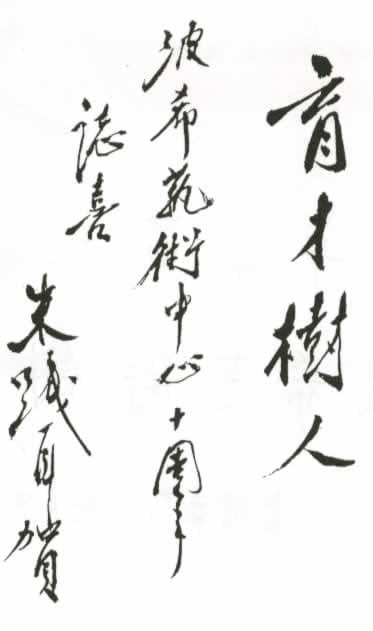 育才樹人
波希藝術中心十周年
誌喜
朱踐耳賀